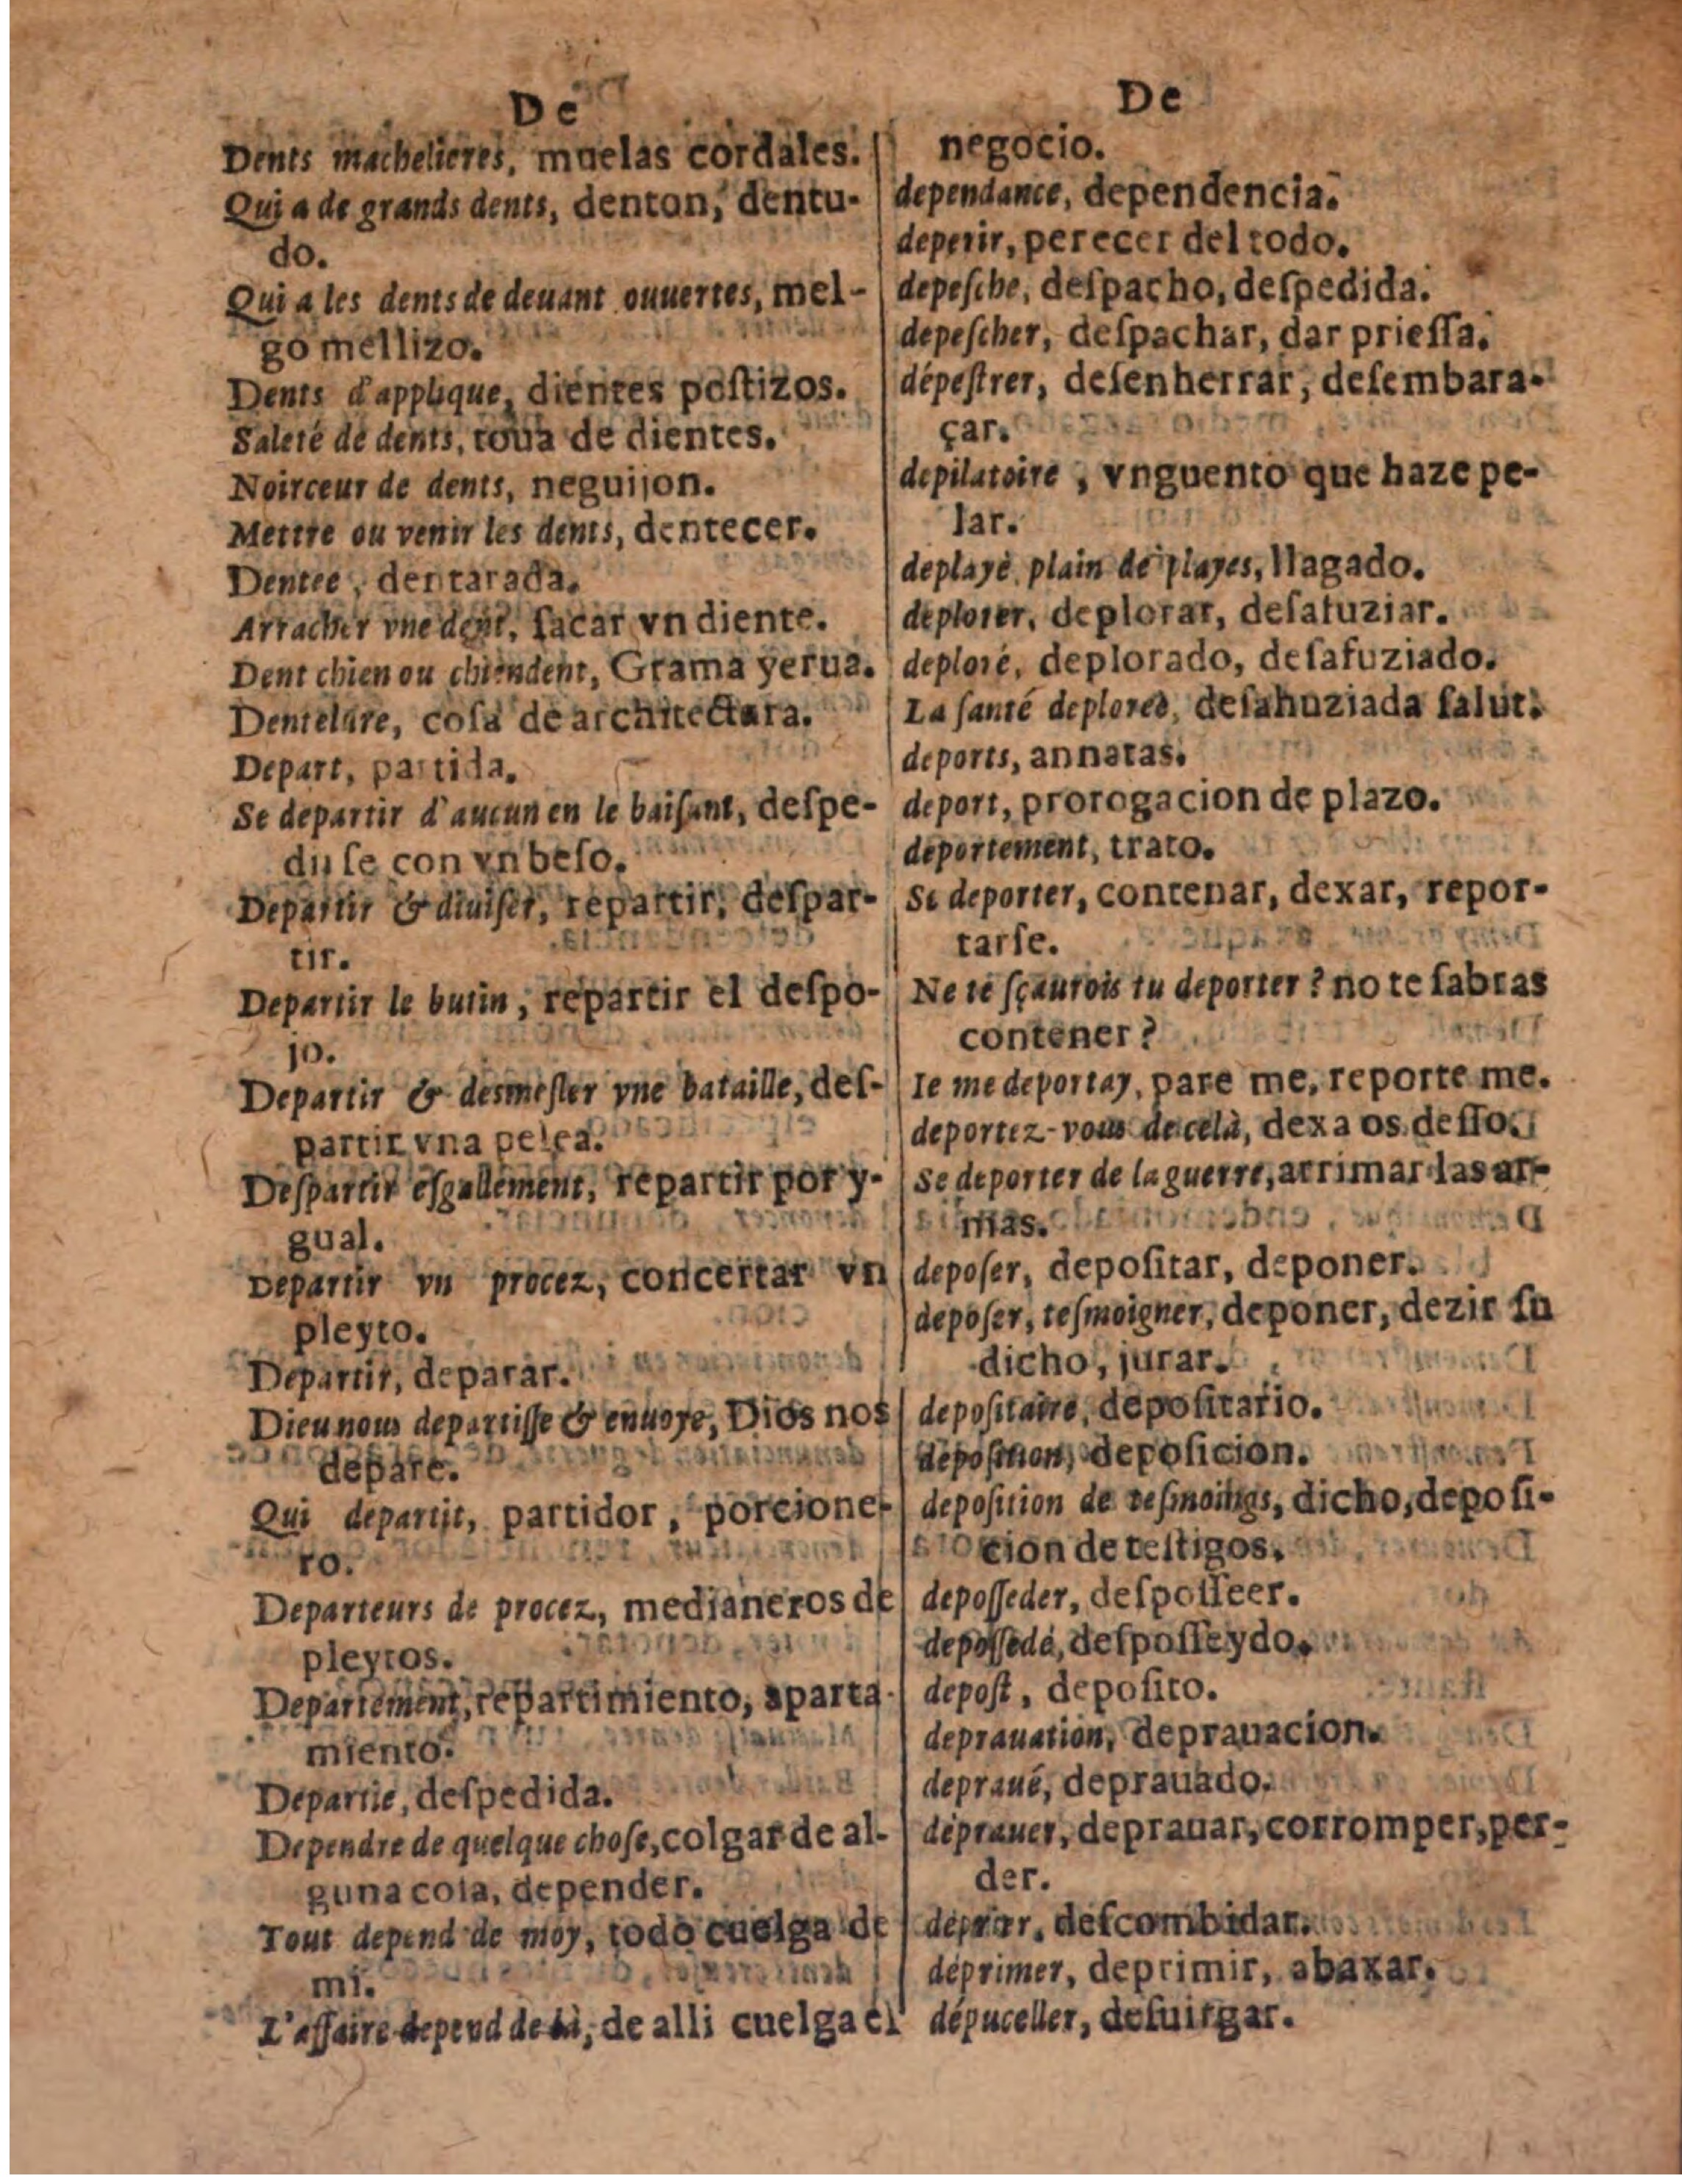 De
Dents machelieres, muelas cordales.
Qui a de grands dents, denton, dentu-
do.
Qui a les dents de deuant ouuertes, mel-
go mellizo.
Dents d'applique, dientes poſtizos.
Saleté de dents, toua de dientes.
Noirceur de dents, neguijon.
Mettre ou venir les dents, dentecer.
Dentee, dentarada.
Arracher vne dent, ſacar vn diente.
Dent chien ou chiendent, Grama yerua.
Dentelure, coſa de architectura.
Depart, partida.
Se departir d'aucun en le baiſant, deſpe-
dir ſe con vn beſo.
Departir & diuiſer, repartir, deſpar-
tir.
Departir le butin, repartir el deſpo-
jo.
Departir & desmeſler vne bataille, deſ-
partir vna pelea.
Deſpartir eſgallement, repartir por y-
gual.
Departir vn procez, concertar vn
pleyto.
Departir, deparar.
Dieu nous departiſſe & enuoye, Dios nos
depare.
Qui departit, partidor, porcione-
ro.
Departeurs de procez, medianeros de
pleytos.
Departement, repartimiento, aparta-
miento.
Departie, deſpedida.
Dependre de quelque choſe, colgar de al-
guna coſa, depender.
Tout depend de moy, todo cuelga de
mi.
L'affaire depend de là, de alli cuelga el
De
negocio.
dependance, dependencia.
deperir, perecer del todo.
depeſche, deſpacho, deſpedida.
depeſcher, deſpachar, dar prieſſa.
dépeſtrer, deſenherrar, deſembara-
çar.
depilatoire, vnguento que haze pe-
lar.
deplayè plain de playes, llagado.
deplorer, deplorar, deſafuziar.
deploré, deplorado, deſafuziado.
La ſanté deploreé, deſahuziada ſalut.
deports, annatas.
deport, prorogacion de plazo.
deportement, trato.
Se deporter, contenar, dexar, repor-
tarſe.
Ne te ſçaurois tu deporter? no te ſabras
contener?
Ie me deportay, pare me, reporte me.
deportez-vous de celà, dexa os deſſo.
Se deporter de la guerre, arrimar las ar-
mas.
depoſer, depoſitar, deponer.
depoſer, teſmoigner, deponer, dezir ſu
dicho, jurar.
depoſitaire, depoſitario.
depoſition, depoſicion.
depoſition de teſmoings, dicho, depoſi-
cion de teſtigos.
depoſſeder, deſpoſſeer.
depoſſedé, deſpoſſeydo.
depoſt, depoſito.
deprauation, deprauacion.
deprauè, deprauado.
deprauer, deprauar, corromper, per-
der.
deprier, deſcombidar.
déprimer, deprimir, abaxar.
dépuceller, deſuirgar.